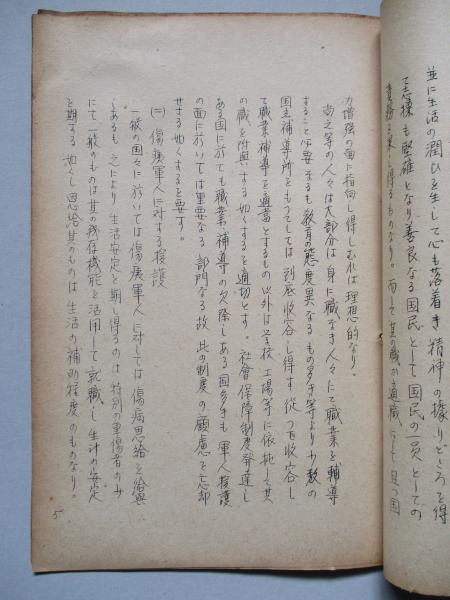 並に生活の潤ひを生して心も落着き精神の據りどころを得
て志操も堅確となり善良なる国民として国民の一員としての
責務を果し得るものなり。而して其の職が適職にして且つ国
力増強の面に指向し得しむれば理想的なり。
尚之等の人々は大部分は身に職なき人々にて職業を輔導
することを要するも教育の態度異なるもの多き等より少数の
国立補導所をもってしては到底収容し得す従つて収容し
て職業補導を適当とするもの以外は学校工場等に依托して其
の職を附與する如くするを適切とす。社会保障制度発達し
ある国に於ても職業補導の欠除しある国多きも軍人援護
の面に於いては重要なる部門なる故此の制度の顧慮を忘却
せさる如くするを要す。
(二)傷痍軍人に対する援護
一般の国々に於いては傷痍軍人に対しては傷病恩給を給與
しあるも之により生活安定を期し得るのは特別の重傷者のみ
にて一般のものは其の残存機能を活用して就職し生計の安定
を期する如くし恩給其のものは生活の補助程度のものなり。
5